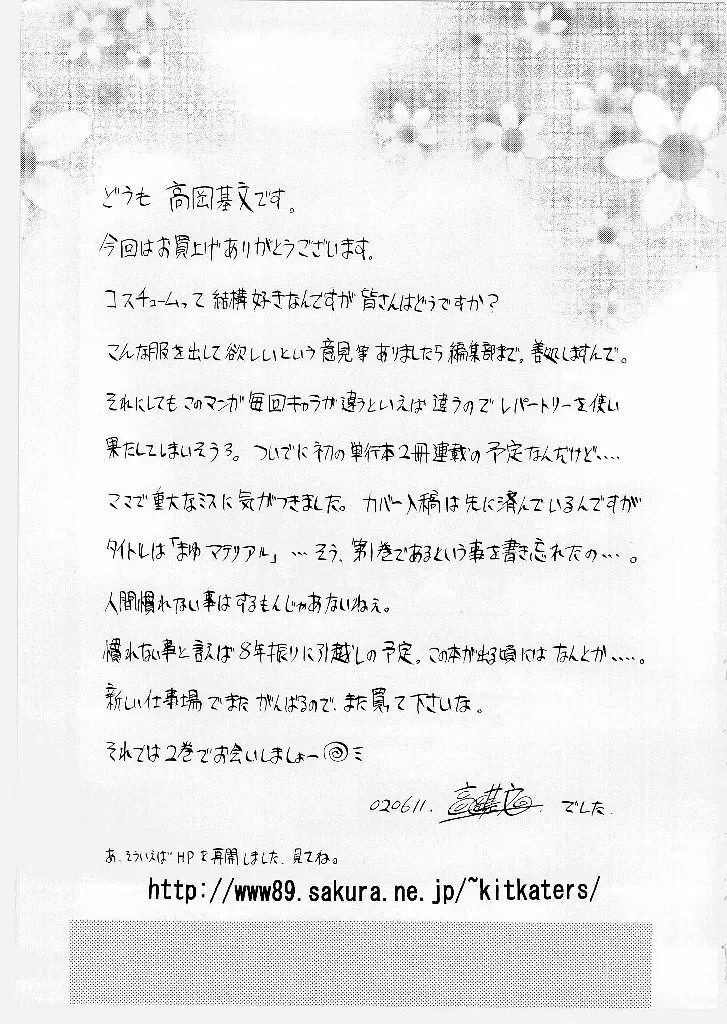 どうも 高岡基文です。
今回はお買上げありがとうございます。
コスチュームって結構好きなんですが皆さんはどうですか？
こんな服を出して欲しいという意見等ありましたら編集部まで。善処しますんで。
それにしてもこのマンガ毎回キャラが違うといえば違うのでレパートリーを使い
果たしてしまいそうろ。ついでに初の単行本2冊連載の予定なんだけど‥‥
ママで重大なミスに気がつきました。カバー入稿は先に済んでいるんですが
タイトルは「まゆマテリアル」…そう、第1巻であるという事を書き忘れたの…。
人間慣れない事はするもんじゃあないねぇ。
慣れない事と言えば8年振りに引越しの予定。この本が出る頃にはなんとか‥‥。
新しい仕事場でまたがんばるので、また買って下さいな。
それでは2巻でお会いしましょー
020611. 高岡基文 でした.
あ、そういえばHPを再開しました、見てね。
http://www89.sakura.ne.jp/~kitkaters/